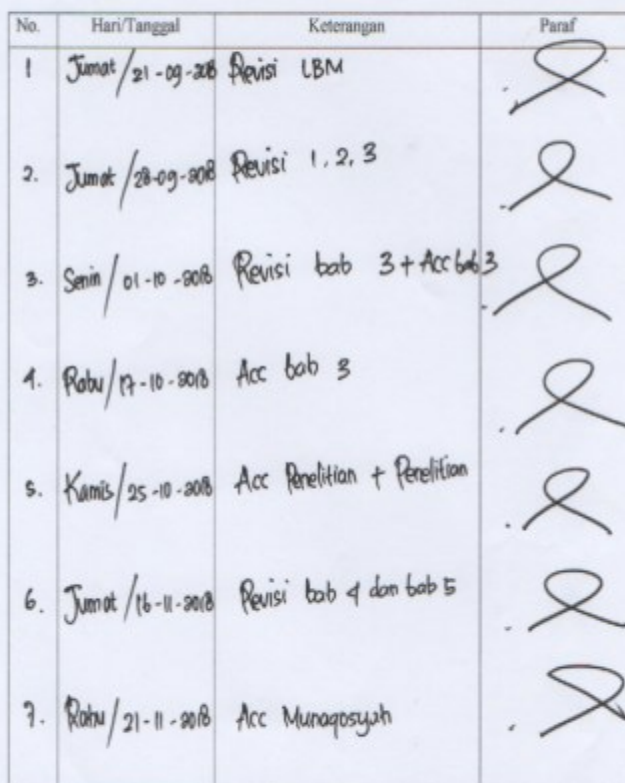 No. Hari/Tanggal Keterangan Paraf
1 Jumat/21-09-2018 Revisi LBM
2. Jumat/28-09-2018 Revisi 1, 2, 3
3. Senin/01-10-2018 Revisi bab 3 + Acc bab 3
4. Rabu/17-10-2018 Acc bab 3
5. Kamis/25-10-2018 Acc Penelitian + Penelitian
6. Jumat/16-11-2018 Revisi bab 4 dan bab 5
7. Rabu/21-11-2018 Acc Munaqosyah